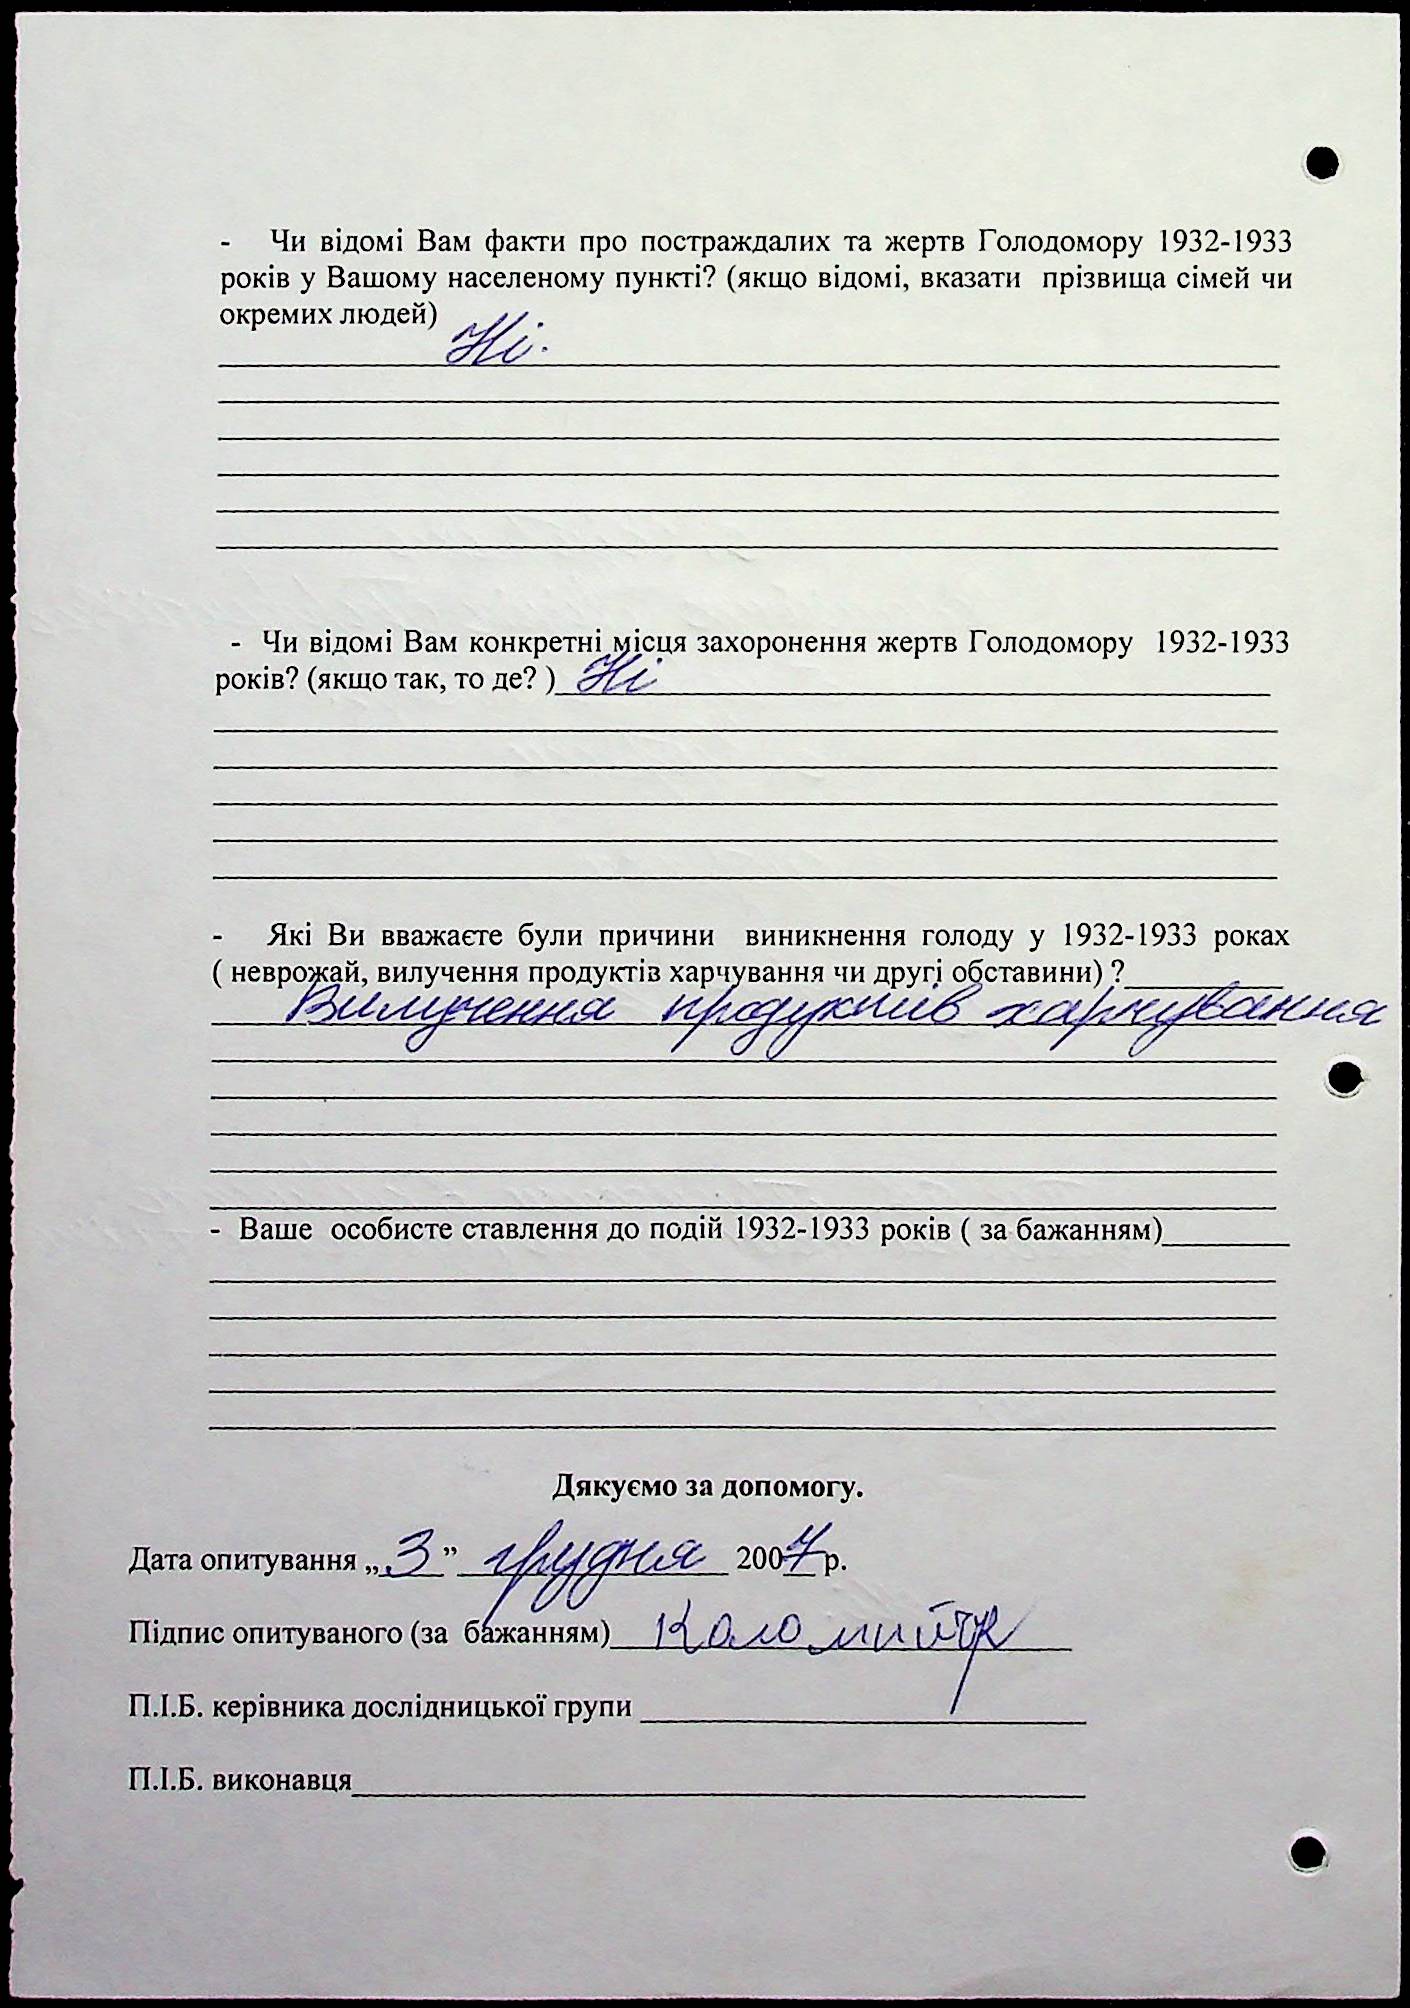 - Чи відомі Вам факти про постраждалих та жертв Голодомору 1932-1933
років у Вашому населеному пункті? (якщо відомі, вказати прізвища сімей чи
окремих людей)
Ні.
- Чи відомі Вам конкретні місця захоронення жертв Голодомору 1932-1933
років? (якщо так, то де? ) Ні
- Які Ви вважаєте були причини виникнення голоду у 1932-1933 роках
( неврожай, вилучення продуктів харчування чи другі обставини) ?
Вилучення продуктів харчування
- Ваше особисте ставлення до подій 1932-1933 років ( за бажанням)
Дякуємо за допомогу.
Дата опитування „3” грудня 2007 р.
Підпис опитуваного (за бажанням)
П.І.Б. керівника дослідницької групи
П.І.Б. виконавця